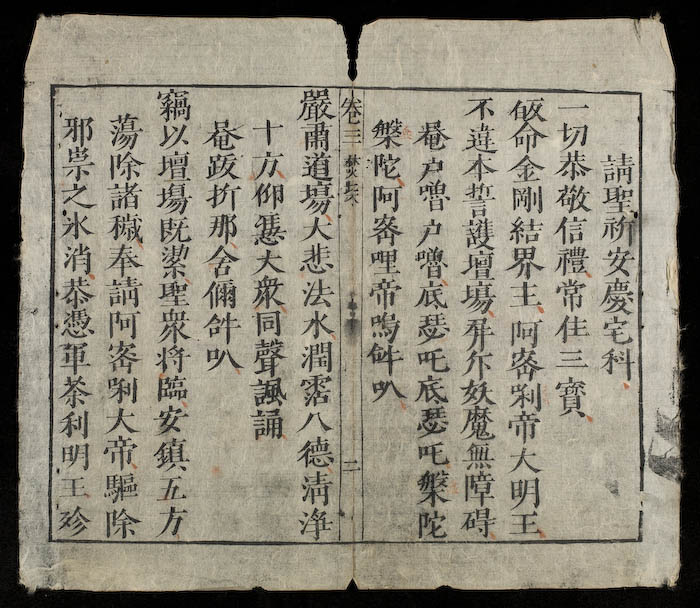 請聖祈安慶宅科
一切恭敬信禮常住三寶
皈命金剛結界主阿密唎帝大明王
不違本誓護壇塲屏尒妖魔無障碍
唵户嚕户嚕底瑟吒底瑟吒盤陀
盤陀阿密哩帝嗚𤙖叭
卷三
二
嚴肅道塲大悲法水潤霑八德清淨
十方仰憑大衆同聲諷誦
唵跋折那舍儞𤙖叭
竊以壇塲既潔聖衆将臨安鎮五方
蕩除諸穢奉請阿密唎大帝驅除
邪祟之氷消恭憑軍荼利明王殄